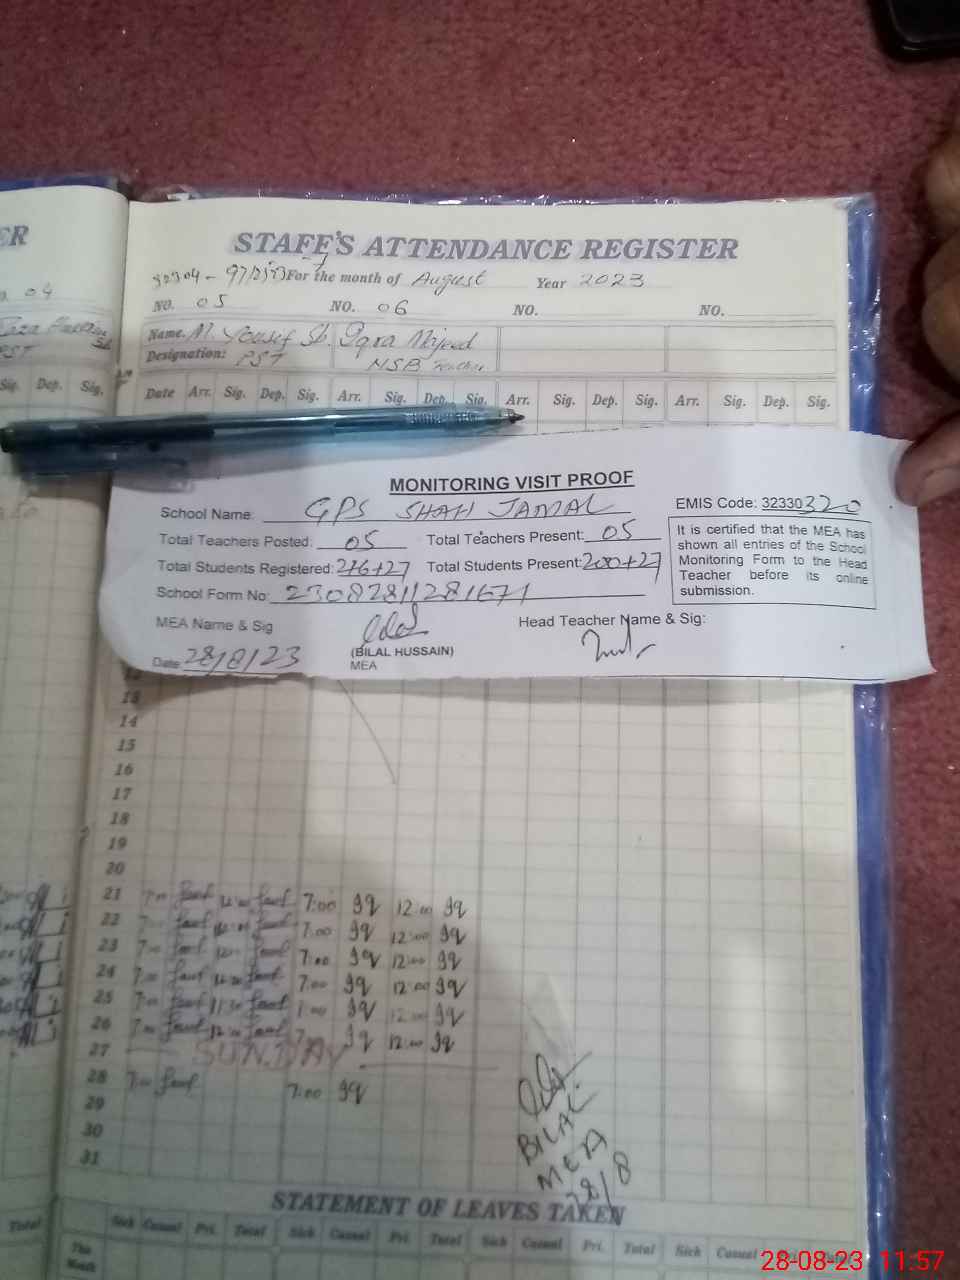 STAFF'S ATTENDANCE REGISTER
For the month of August Year 2023
NO. 05 NO. 06 NO. NO.
Name. M. Yousif Sb. Iqra Majeed
Designation: PST NSB Teacher
Date Arr. Sig. Dep. Sig. Arr. Sig. Dep. Sig. Arr. Sig. Dep. Sig. Arr. Sig. Dep. Sig.
ER
04
PST
Sig. Dep. Sig.
MONITORING VISIT PROOF
School Name: GPS SHAH JAMAL EMIS Code: 32330320
Total Teachers Posted: 05 Total Teachers Present: 05
Total Students Registered: 216+27 Total Students Present: 200+27
School Form No: 23082811281671
It is certified that the MEA has
shown all entries of the School
Monitoring Form to the Head
Teacher before its online
submission.
MEA Name & Sig Head Teacher Name & Sig:
(BILAL HUSSAIN)
Date 28/8/23 MEA
12
13
14
15
16
17
18
19
20
21 7:00 12:00 7:00 Iq 12:00 Iq
22 7:00 12:00 7:00 Iq 12:00 Iq
23 7:00 12:00 7:00 Iq 12:00 Iq
24 7:00 12:00 7:00 Iq 12:00 Iq
25 7:00 11:30 7:00 Iq 12:00 Iq
26 7:00 12:00 7:00 Iq 12:00 Iq
27 SUNDAY
28 7:00 7:00 Iq
29
30
31
BILAL
MEA
28/8
STATEMENT OF LEAVES TAKEN
Total Sick Casual Pri. Total Sick Casual Pri. Total Sick Casual Pri. Total Sick Casual Pri. Total
The
Month
28-08-23 11:57